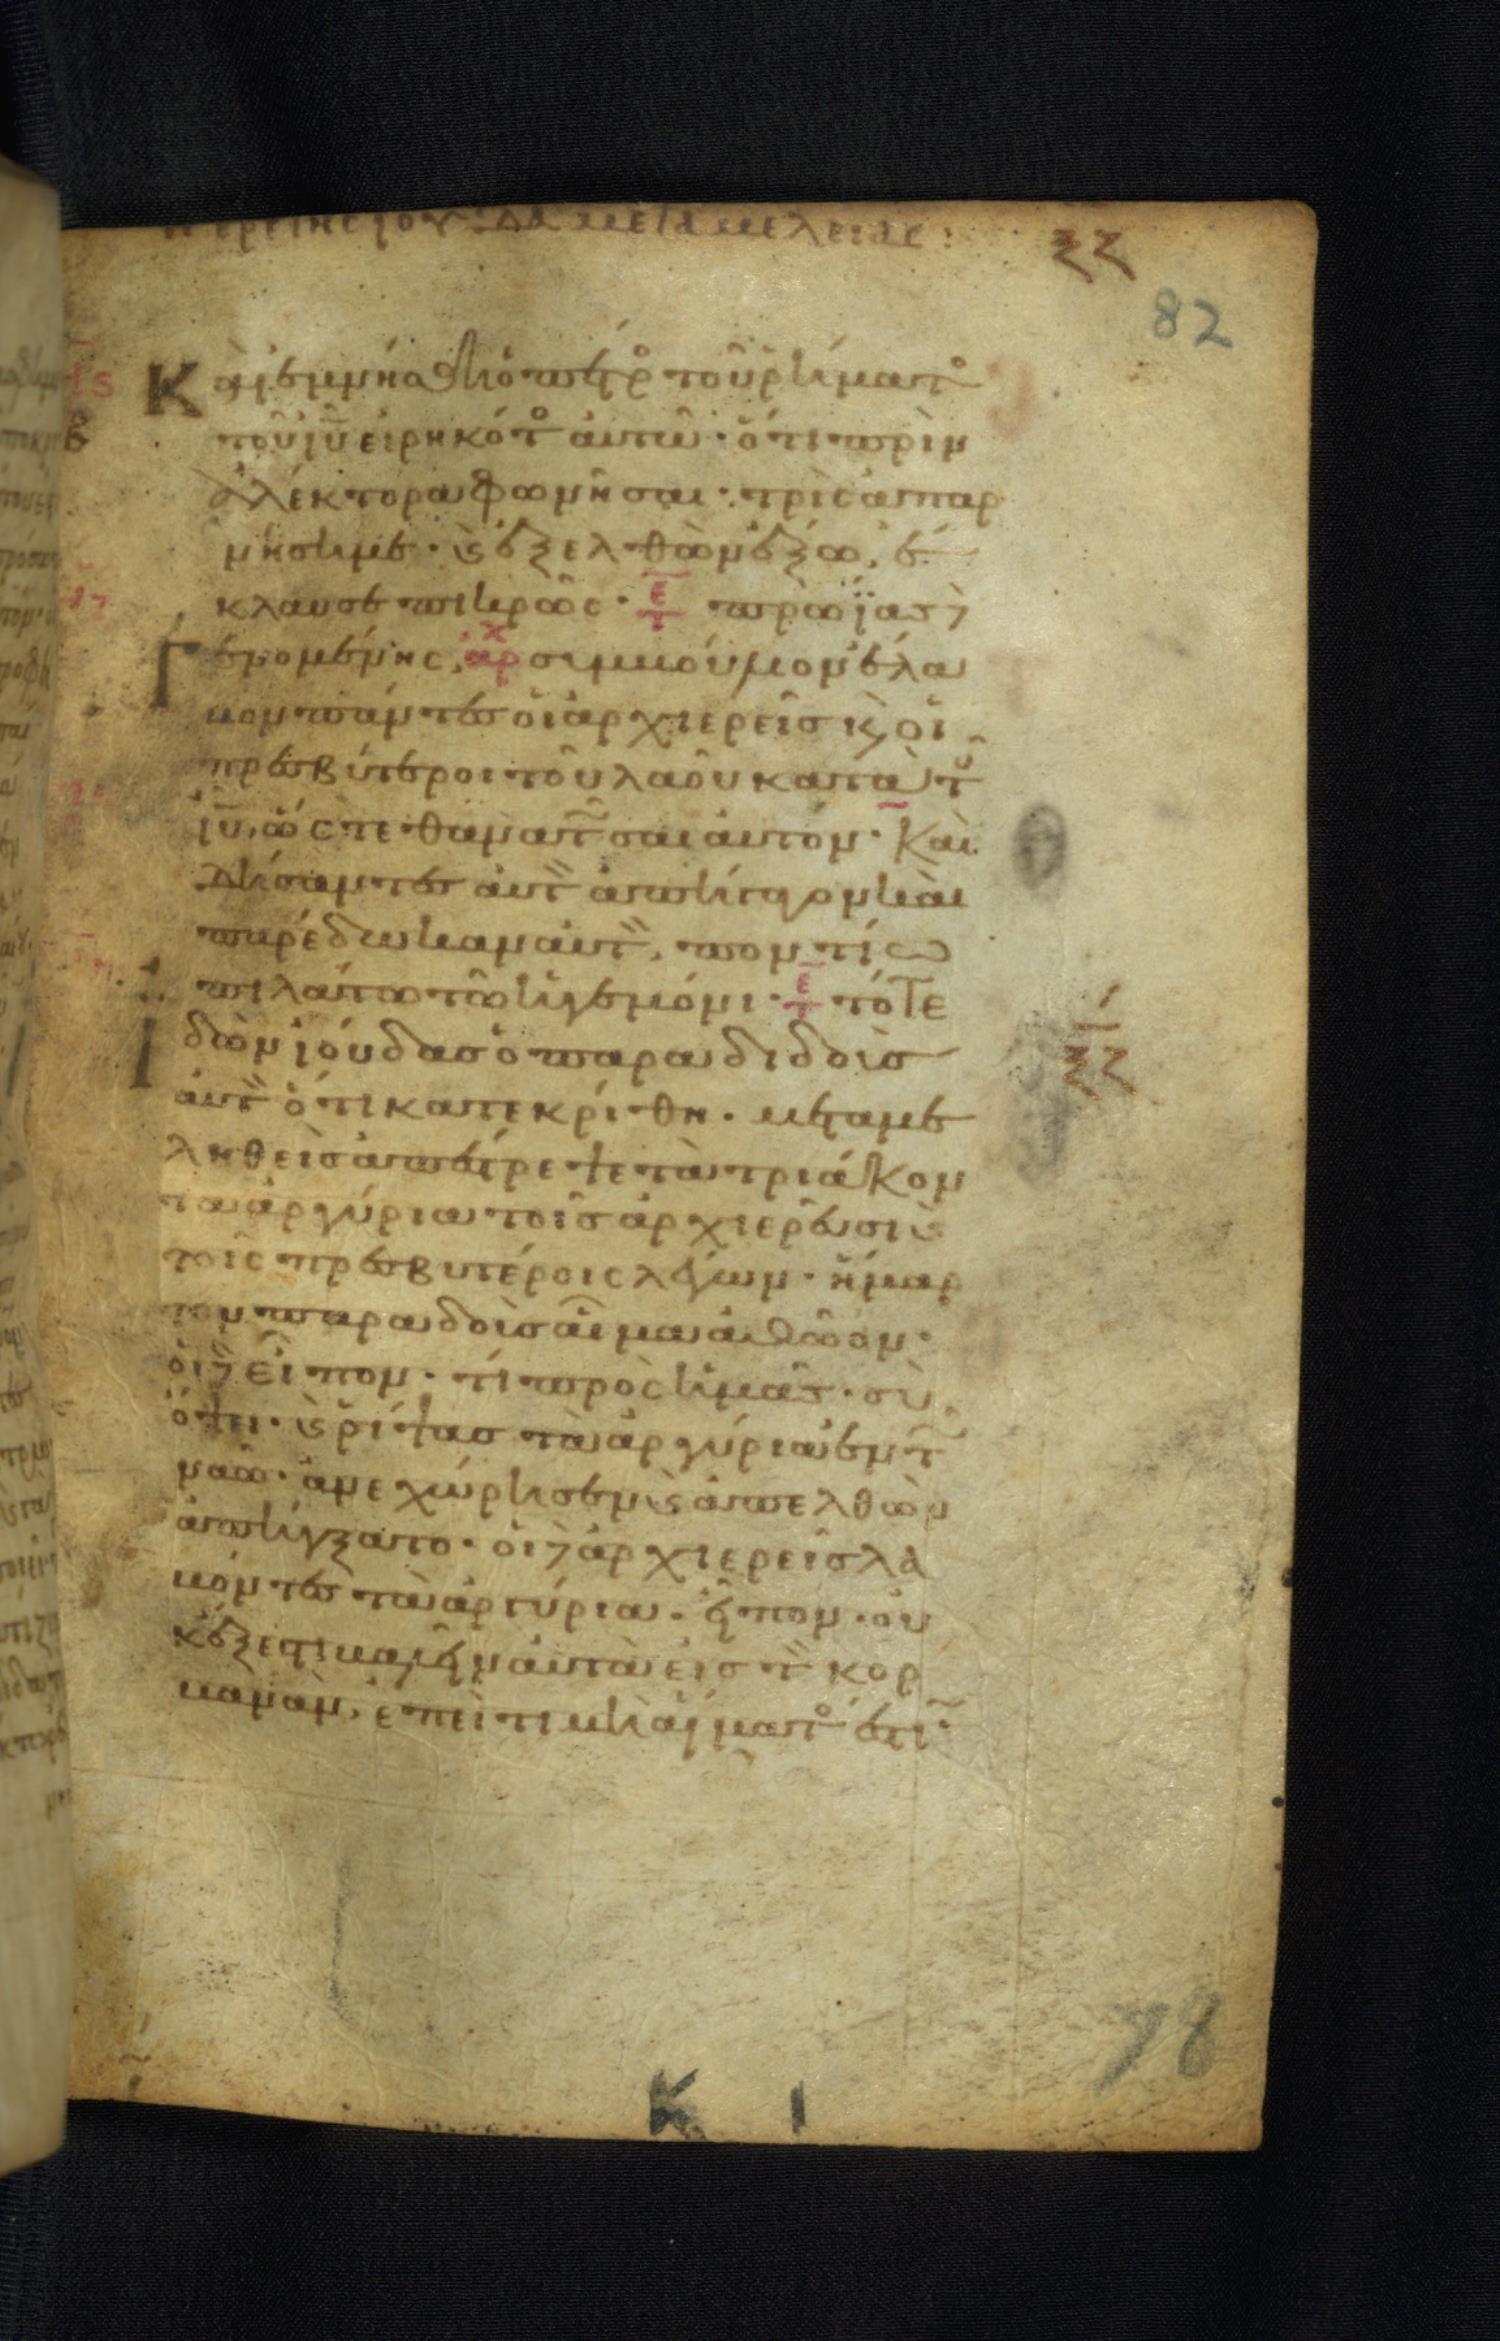 περι της ιου δα μεταμελειας :
ξζ
82
Καὶ ἐμνήσθη ὁ πετρ τοῦ ῥήματ
τοῦ ιυ εἰρηκότ αυτῶ · ὅτι πρὶν
ἀλέκτορα φωνῆσαι · τρὶς ἀπαρ
νήση με · κ ἐξελθὼν ἔξω, ἔ
κλαυσε πικρῶς · πρωΐας δὲ
Γενομένης, συμβούλιον ἔλα
βον πάντες οἱ ἀρχιερεῖς κ οἱ
πρεσβύτεροι τοῦ λαοῦ κατὰ τ
ιυ, ὥστε θανατῶσαι αυτόν · Καὶ
δήσαντες αυτ ἀπήγαγον καὶ
παρέδωκαν αυτ, ποντίω
πιλάτω τῶ ἡγεμόνι · τότε
Ἰδὼν ἰούδας ὁ παραδιδοὺς
αυτ ὅτι κατεκρίθη · μεταμε
ληθεὶς ἀπέστρεψε τὰ τριάκον
τα ἀργύρια τοῖς ἀρχιερεῦσι κ
τοῖς πρεσβυτέροις λέγων · ἥμαρ
τον παραδοὺς αἷμα ἀθῶον ·
οἱ δὲ εἶπον · τί πρὸς ἡμᾶς · σὺ
ὄψει · κ ῥίψας τὰ ἀργύρια ἐν τ
ναῶ · ἀνεχώρησεν κ ἀπελθὼν
ἀπήγξατο · οἱ δὲ ἀρχιερεῖς λα
βόντες τὰ ἀργύρια · εἶπον · οὐ
κ ἔξεστι βαλεῖν αυτὰ εἰς τ κορ
βανὰν, ἐπεὶ τιμὴ αἵματ ἐστι ·
ξζ
78
Κ Ι